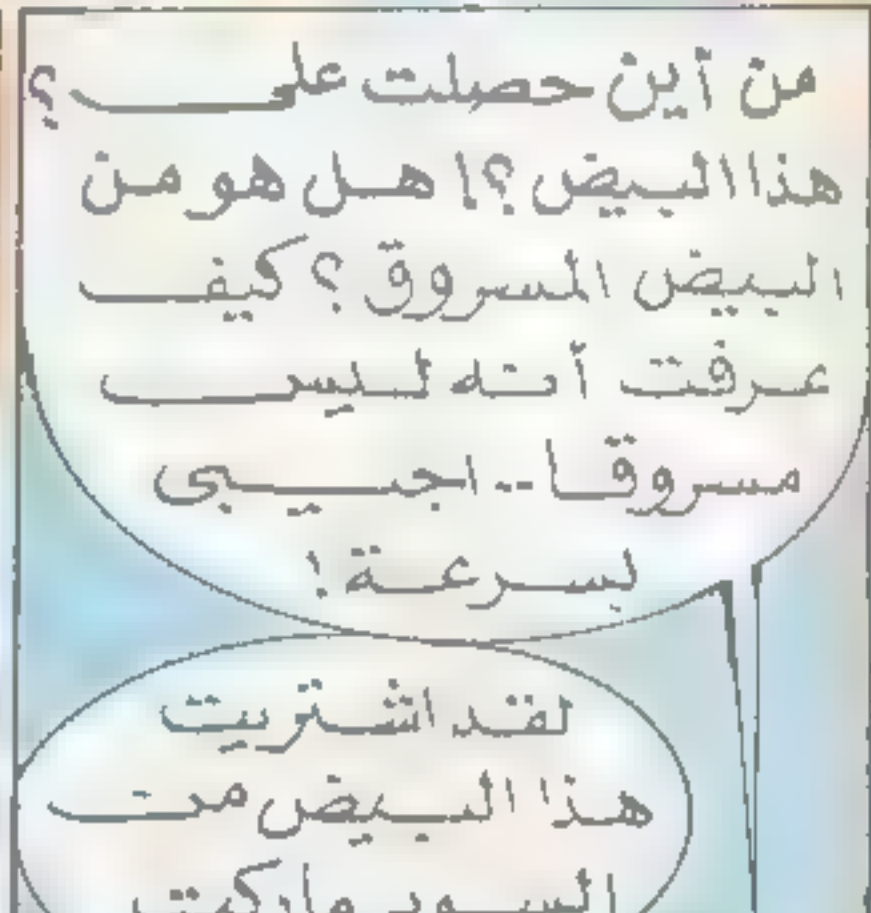 من أين حصلت على ؟
هذا البيض ؟! هل هو من
البيض المسروق ؟ كيف
عرفت أنه ليس
مسروقا .. اجيبي
بسرعة !
لقد اشتريت
هذا البيض من
السوبر ماركت